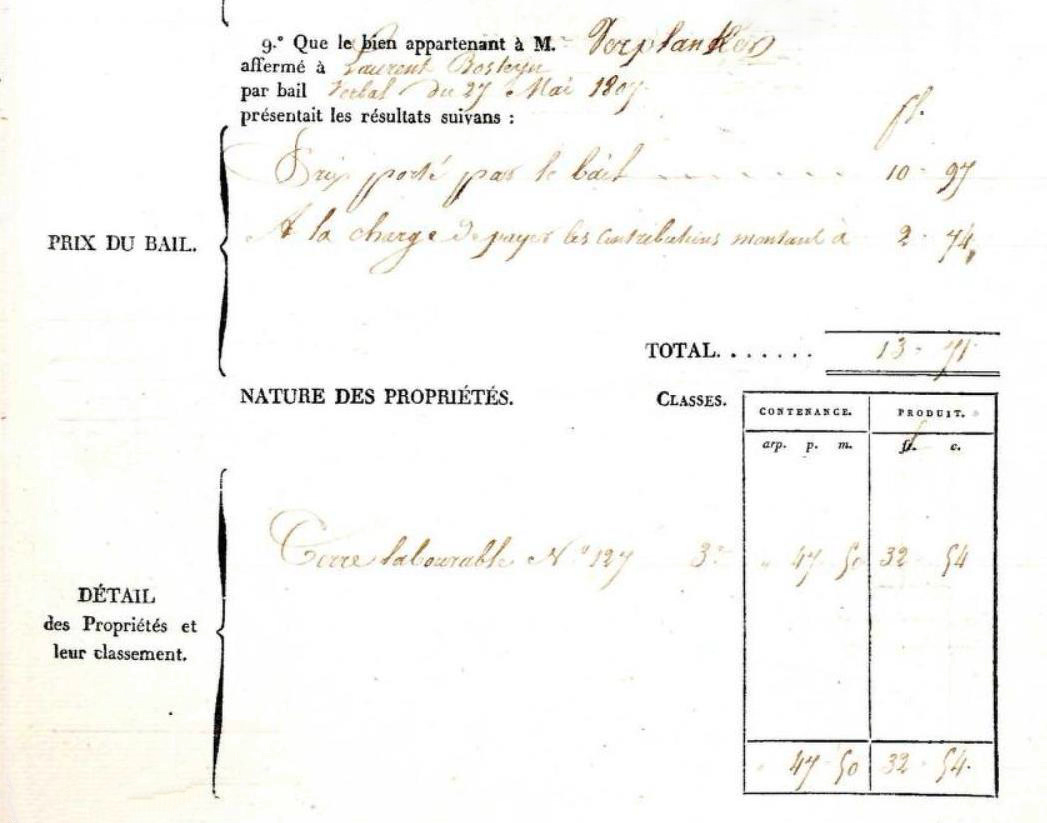 9.° Que le bien appartenant à M.r Verplanken
affermé à Laurent Bosteyn
par bail Verbal du 27 Mai 1807
présentait les résultats suivans :
fl.
Prix porté par le bail 10 - 97
PRIX DU BAIL.
A la charge de payer les Contributions montant à 2 - 74
TOTAL....... 13 - 71
NATURE DES PROPRIÉTÉS. CLASSES. CONTENANCE. PRODUIT.
arp. p. m. fl. c.
Terre labourable N.° 127 3.e " 47 50 32 - 54
DÉTAIL
des Propriétés et
leur classement.
47 50 32 - 54